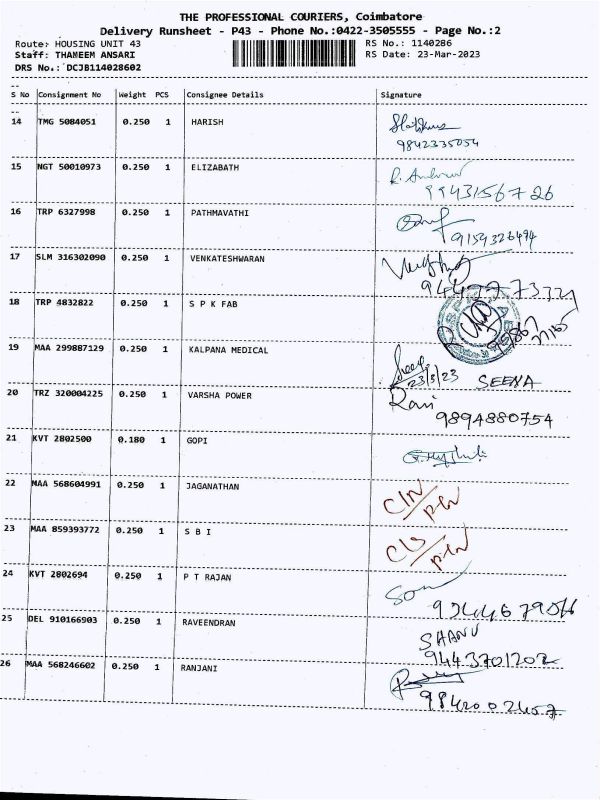 THE PROFESSIONAL COURIERS, Coimbatore
Delivery Runsheet - P43 - Phone No.:0422-3505555 - Page No.:2
Route: HOUSING UNIT 43 RS No.: 1140286
Staff: THANEEM ANSARI RS Date: 23-Mar-2023
DRS No.: DCJB114028602
S No Consignment No Weight PCS Consignee Details Signature
14 TMG 5084051 0.250 1 HARISH
9842335054
15 NGT 50010973 0.250 1 ELIZABATH
9943156726
16 TRP 6327998 0.250 1 PATHMAVATHI
9159326494
17 SLM 316302090 0.250 1 VENKATESHWARAN
18 TRP 4832822 0.250 1 S P K FAB
19 MAA 299887129 0.250 1 KALPANA MEDICAL
23/3/23 SEENA
20 TRZ 320004225 0.250 1 VARSHA POWER
Ravi
9894880754
21 KVT 2802500 0.180 1 GOPI
22 MAA 568604991 0.250 1 JAGANATHAN
23 MAA 859393772 0.250 1 S B I
24 KVT 2802694 0.250 1 P T RAJAN
25 DEL 910166903 0.250 1 RAVEENDRAN
SHANU
9443701202
26 MAA 568246602 0.250 1 RANJANI